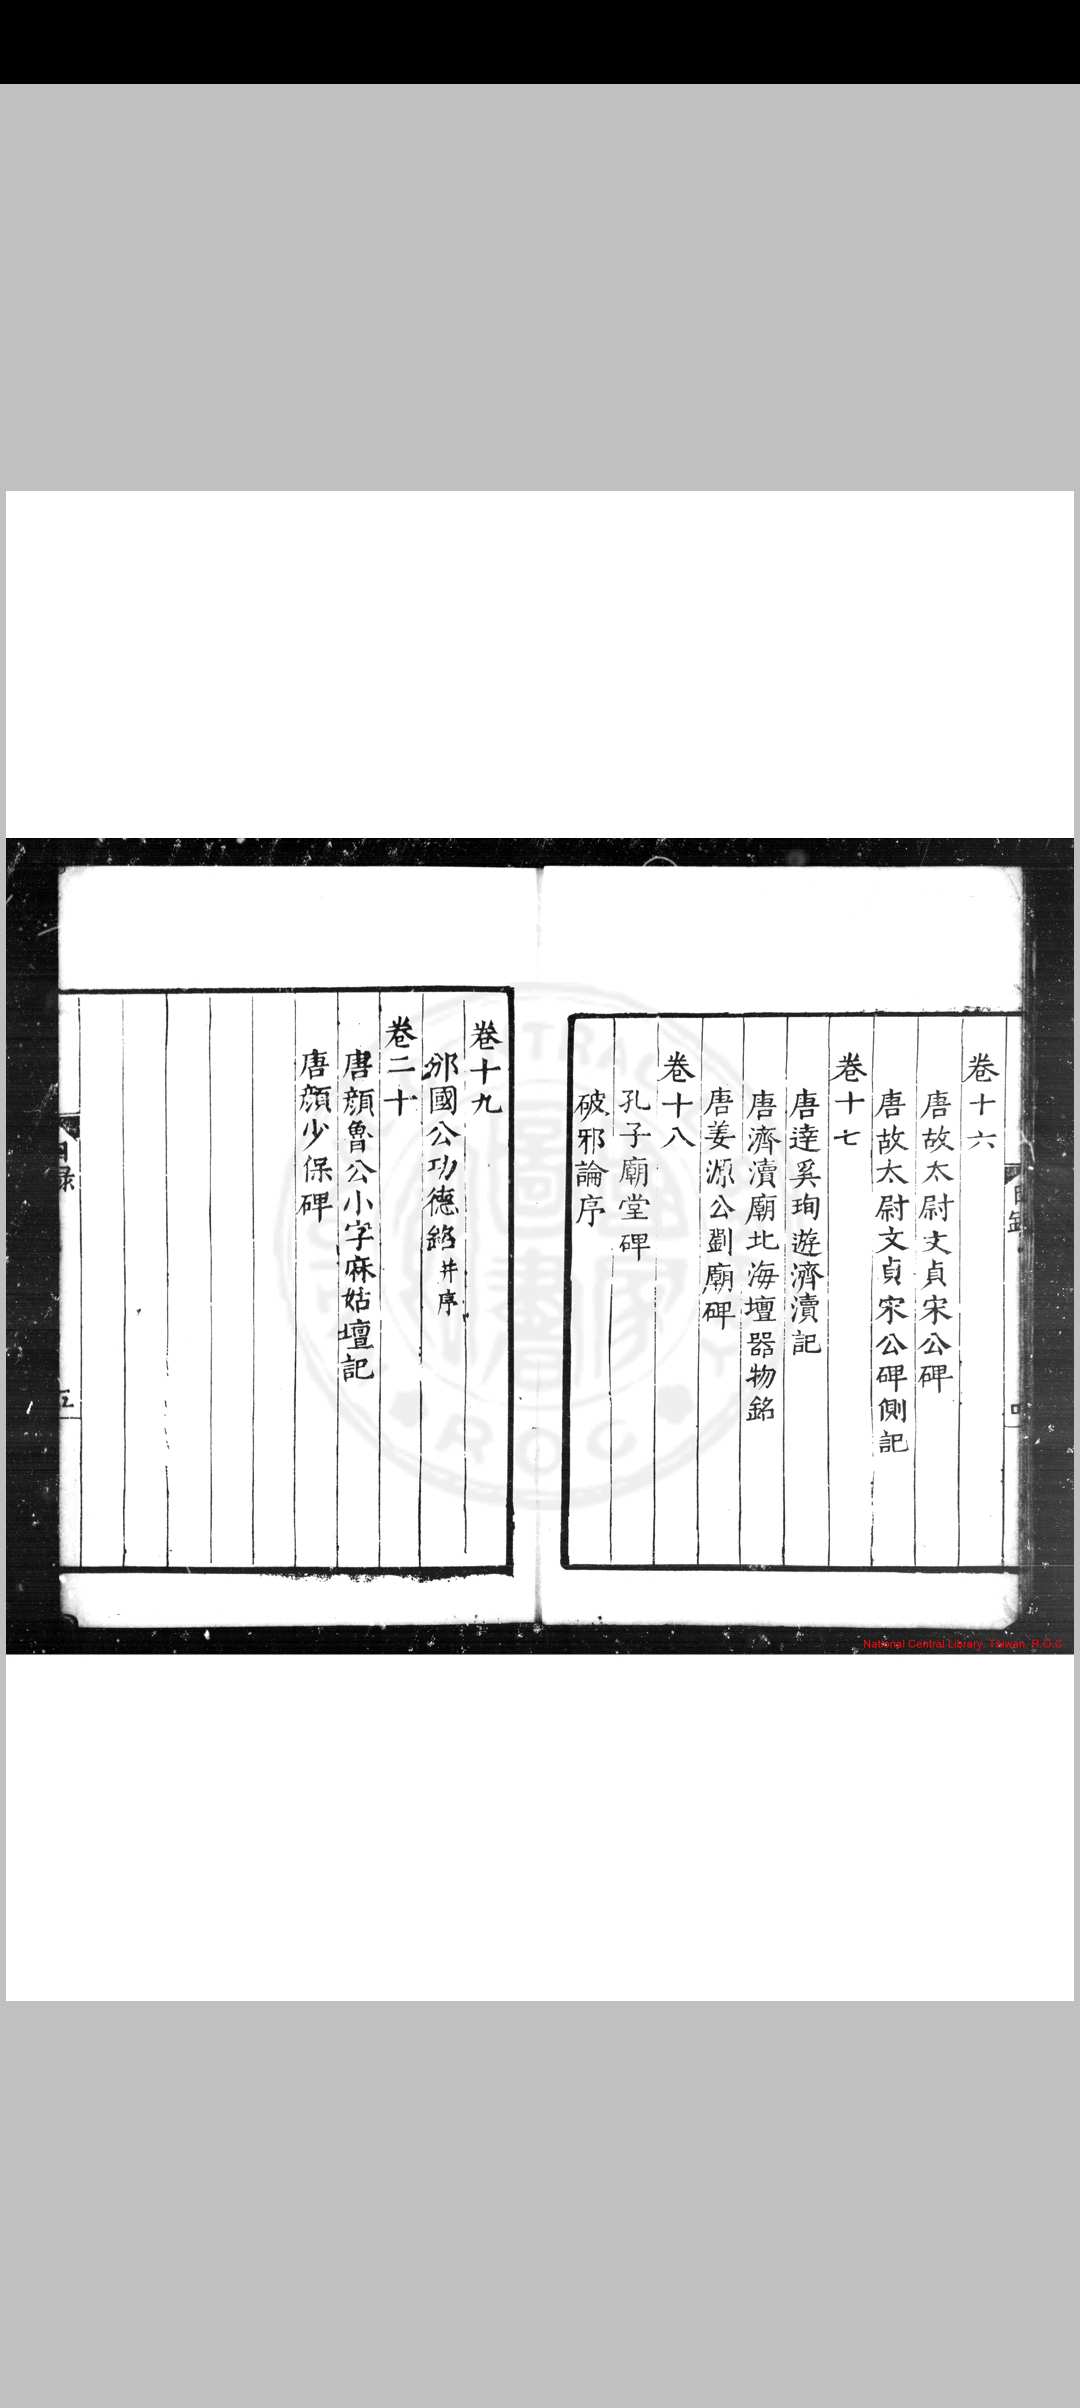 卷十六
唐故太尉文貞宋公碑
唐故太尉文貞宋公碑側記
卷十七
唐逹奚珣遊濟瀆記
唐濟瀆廟北海壇器物銘
唐姜源公劉廟碑
卷十八
孔子廟堂碑
破邪論序
卷十九
邠國公功德銘并序
卷二十
唐顏魯公小字麻姑壇記
唐顏少保碑
目録
五
National Central Library, Taiwan, R.O.C